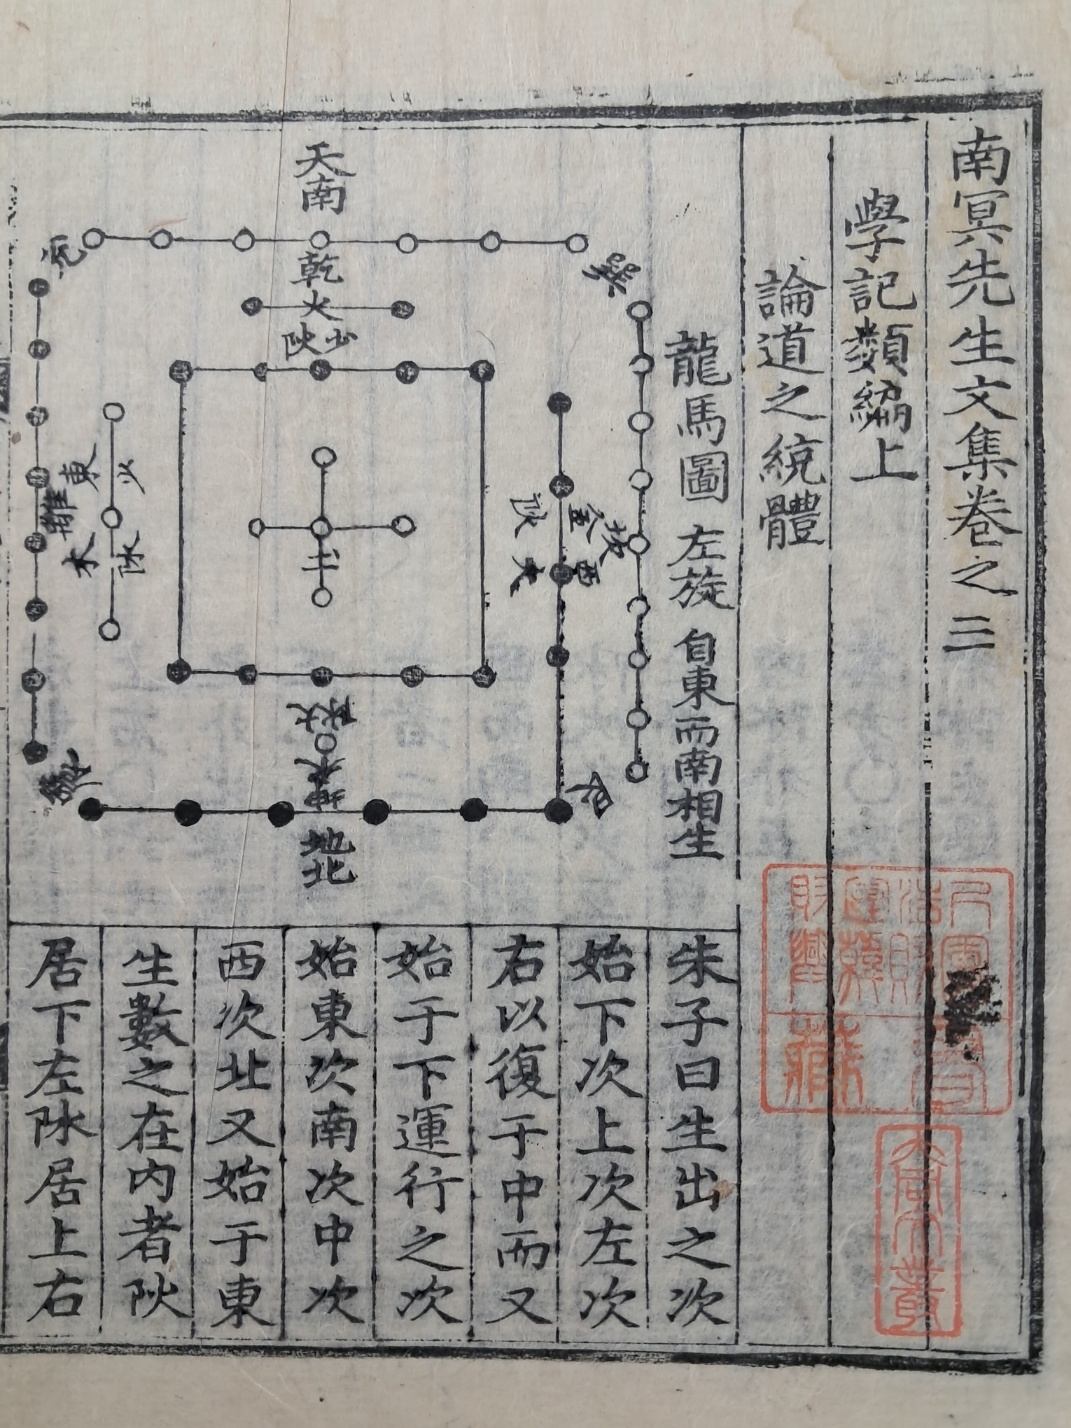 南冥先生文集卷之三
學記類編上
論道之統體
龍馬圖 左旋 自東而南相生
天南
乾
火
少阦
巽
兌
坎
西
金
太
阦
土
東
離
木
少
阥
太阥
水
坤
地北
艮
震
朱子曰生出之次
始下次上次左次
右以復于中而又
始于下運行之次
始東次南次中次
西次北又始于東
生數之在內者阦
居下左阥居上右